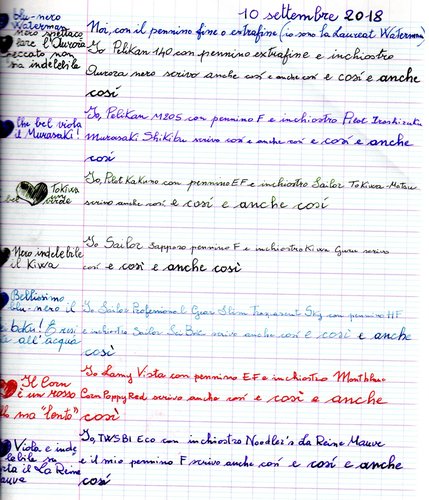 10 settembre 2018
blu-nero
Waterman
Noi, con il pennino fine o extrafine (io sono la Laureat Waterman)
nero spettaco
lare l'Aurora
peccato non
sia indelebile
Io Pelikan 140 con pennino extrafine e inchiostro
Aurora nero scrivo anche così e anche così e così e anche
così
Che bel viola
il Murasaki!
Io, Pelikan M205 con pennino F e inchiostro Pilot Iroshizuku
Murasaki Shikibu scrivo così e anche così e così e anche
così
Tokiwa
bel verde
Io, Pilot Kakuno con pennino EF e inchiostro Sailor Tokiwa-Matsu
scrivo anche così e così e anche così
Nero indelebile
il Kiwa
Io Sailor Sapporo pennino F e inchiostro Kiwa Guro scrivo
così e così e anche così
Bellissimo
blu-nero il
boku! E resi
a all'acqua
Io Sailor Professional Gear Slim Trasparent Sky con pennino HF
e inchiostro Sailor Sei Boku scrivo anche così e così e anche
così
Il Corn
è un rosso
ma "lento"
Io Lamy Vista con pennino EF e inchiostro Montblanc
Corn Poppy Red scrivo anche così e così e anche
così
Viola e inde
lebile
La Reine
Mauve
Io, TWSBI Eco con inchiostro Noodler's La Reine Mauve
e il mio pennino F scrivo anche così e così e anche
così